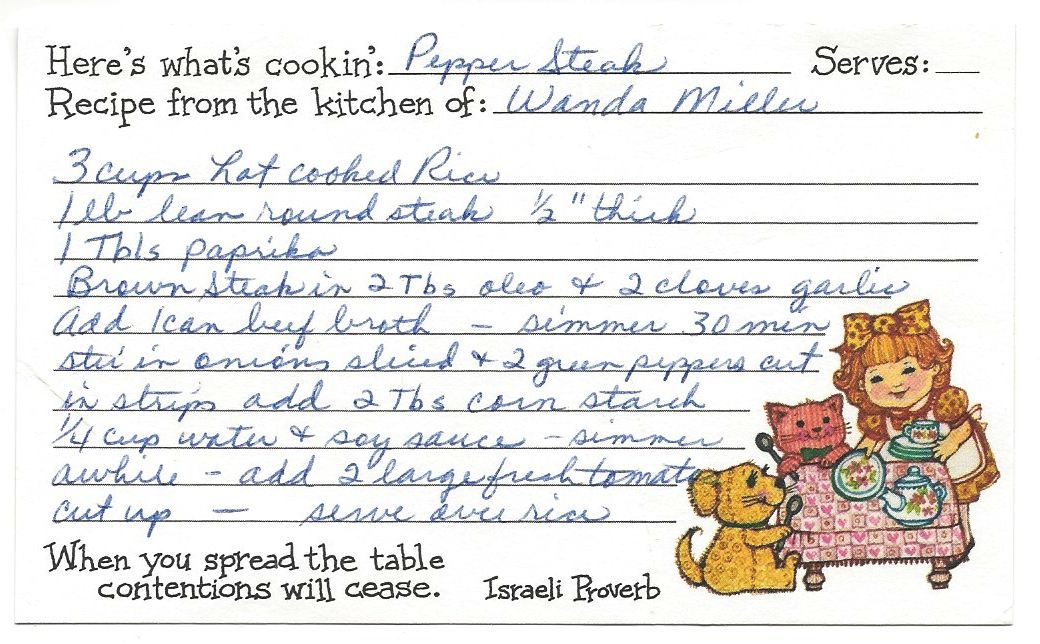 Here's what's cookin': Pepper Steak Serves:
Recipe from the kitchen of: Wanda Miller
3 cups hot cooked Rice
1 lb lean round steak 1/2" thick
1 Tbls paprika
Brown Steak in 2 Tbs oleo & 2 cloves garlic
Add 1 can beef broth - simmer 30 min
stir in onions sliced & 2 green peppers cut
in strips add 2 Tbs corn starch
1/4 cup water & soy sauce - simmer
awhile - add 2 large fresh tomato
cut up - serve over rice
When you spread the table
contentions will cease. Israeli Proverb